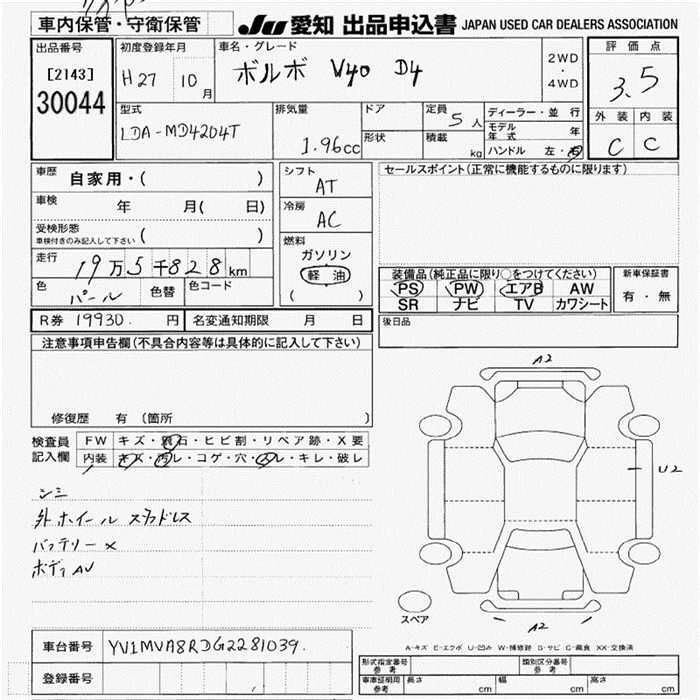 車内保管・守衛保管
JU 愛知 出品申込書 JAPAN USED CAR DEALERS ASSOCIATION
出品番号
[2143]
30044
初度登録年月
H27 10月
車名・グレード
ボルボ V40 D4
2WD
・
4WD
評価点
3.5
外装 内装
C C
型式
LDA-MD4204T
排気量
1.96cc
ドア
形状
定員 5人
積載 kg
ディーラー・並行
モデル年式 年
ハンドル 左・右
車歴 自家用・( )
車検 年 月( 日)
受検形態
車検付きのみ記入して下さい ( )
走行 19万5千828km
色 パール 色替 色コード
シフト
AT
冷房
AC
燃料
ガソリン
軽油
( )
セールスポイント(正常に機能するものに限ります)
装備品(純正品に限り○をつけてください)
PS PW エアB AW
SR ナビ TV カワシート
新車保証書
有・無
後日品
R券 19930. 円 名変通知期限 月 日
注意事項申告欄(不具合内容等は具体的に記入して下さい)
修復歴 有 〔箇所 〕
検査員記入欄
FW キズ・飛石・ヒビ割・リペア跡・X要
内装 キズ・汚レ・コゲ・穴・スレ・キレ・破レ
シミ
外ホイール スタッドレス
バッテリー×
ボディAU
A2
U2
A2
スペア
A-キズ E-エクボ U-凹み W-補修跡 S-サビ C-腐食 XX-交換済
車台番号 YV1MVA8RDG2281039.
登録番号
形式指定番号 参考
類別区分番号 参考
車庫証明用 参考 長さ cm 幅 cm 高さ cm